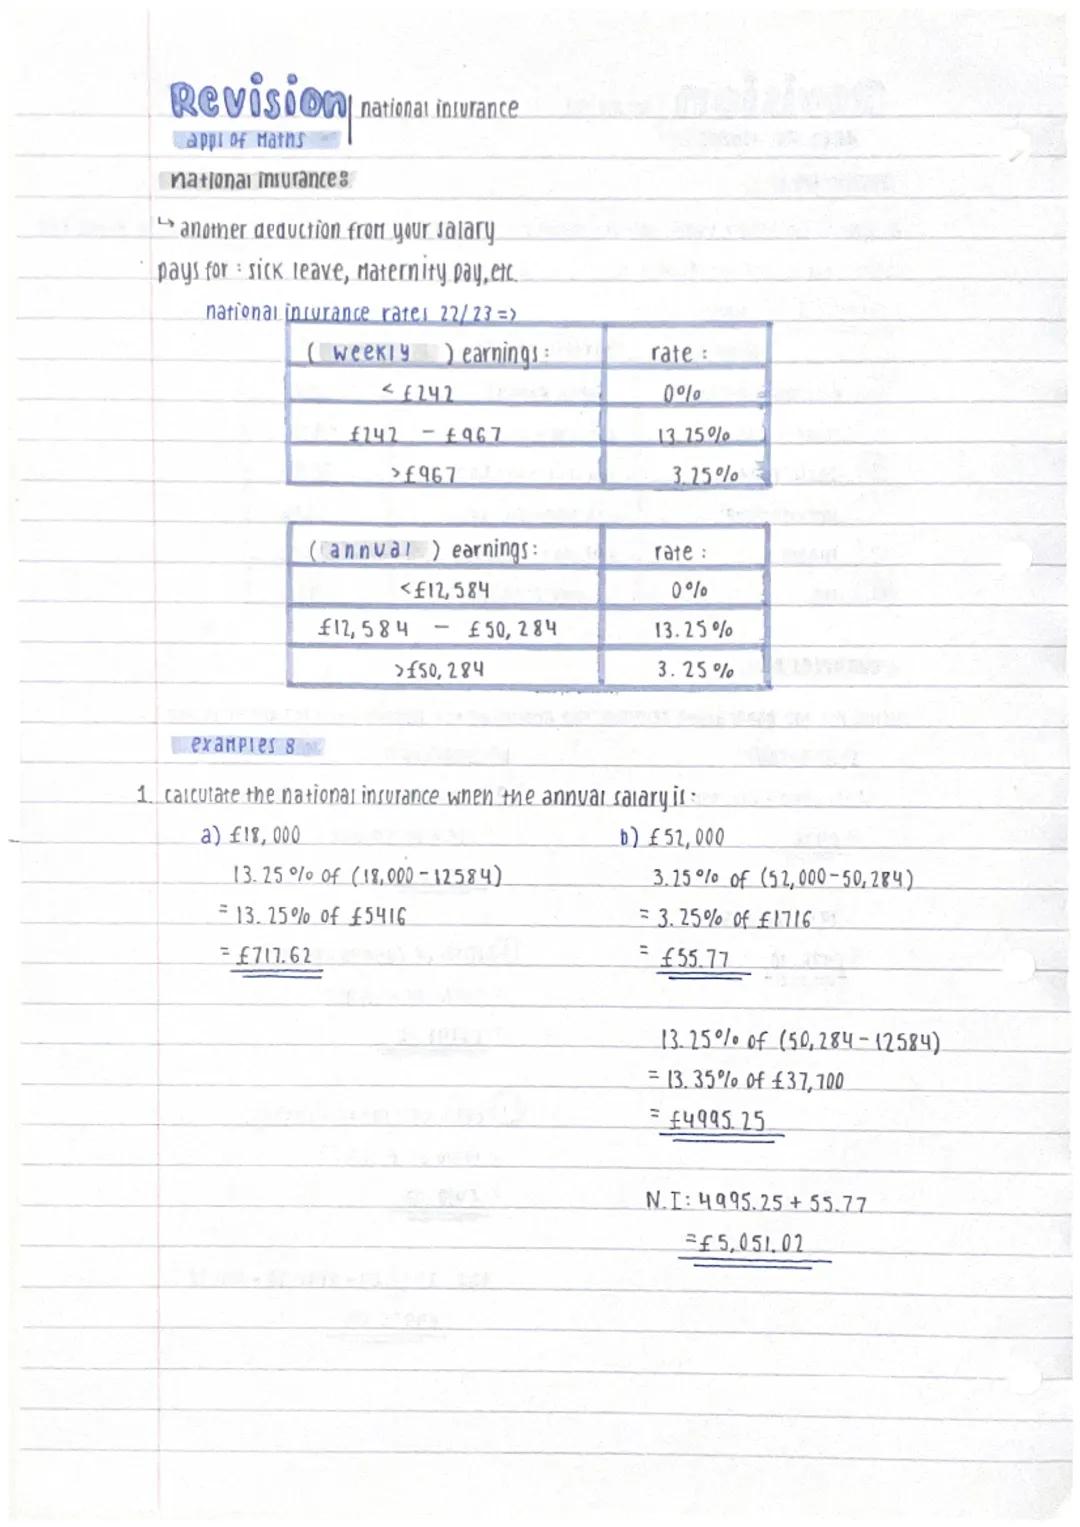 Revision | national insurance
appl of Maths
national insurance:
↳ another deduction from your salary
pays for : sick leave, Maternity pay, etc.
national insurance rates 22/23 =>
( weekly ) earnings : rate :
< £242 0%
£242 - £967 13.25%
>£967 3.25%
( annual ) earnings: rate :
<£12,584 0%
£12,584 - £50,284 13.25%
>£50,284 3.25%
examples :
1. calculate the national insurance when the annual salary is :
a) £18,000 b) £52,000
13.25% of (18,000-12584) 3.25% of (52,000-50,284)
= 13.25% of £5416 = 3.25% of £1716
= £717.62 = £55.77
13.25% of (50,284-12584)
= 13.35% of £37,700
= £4995.25
N.I: 4995.25 + 55.77
=£5,051.02